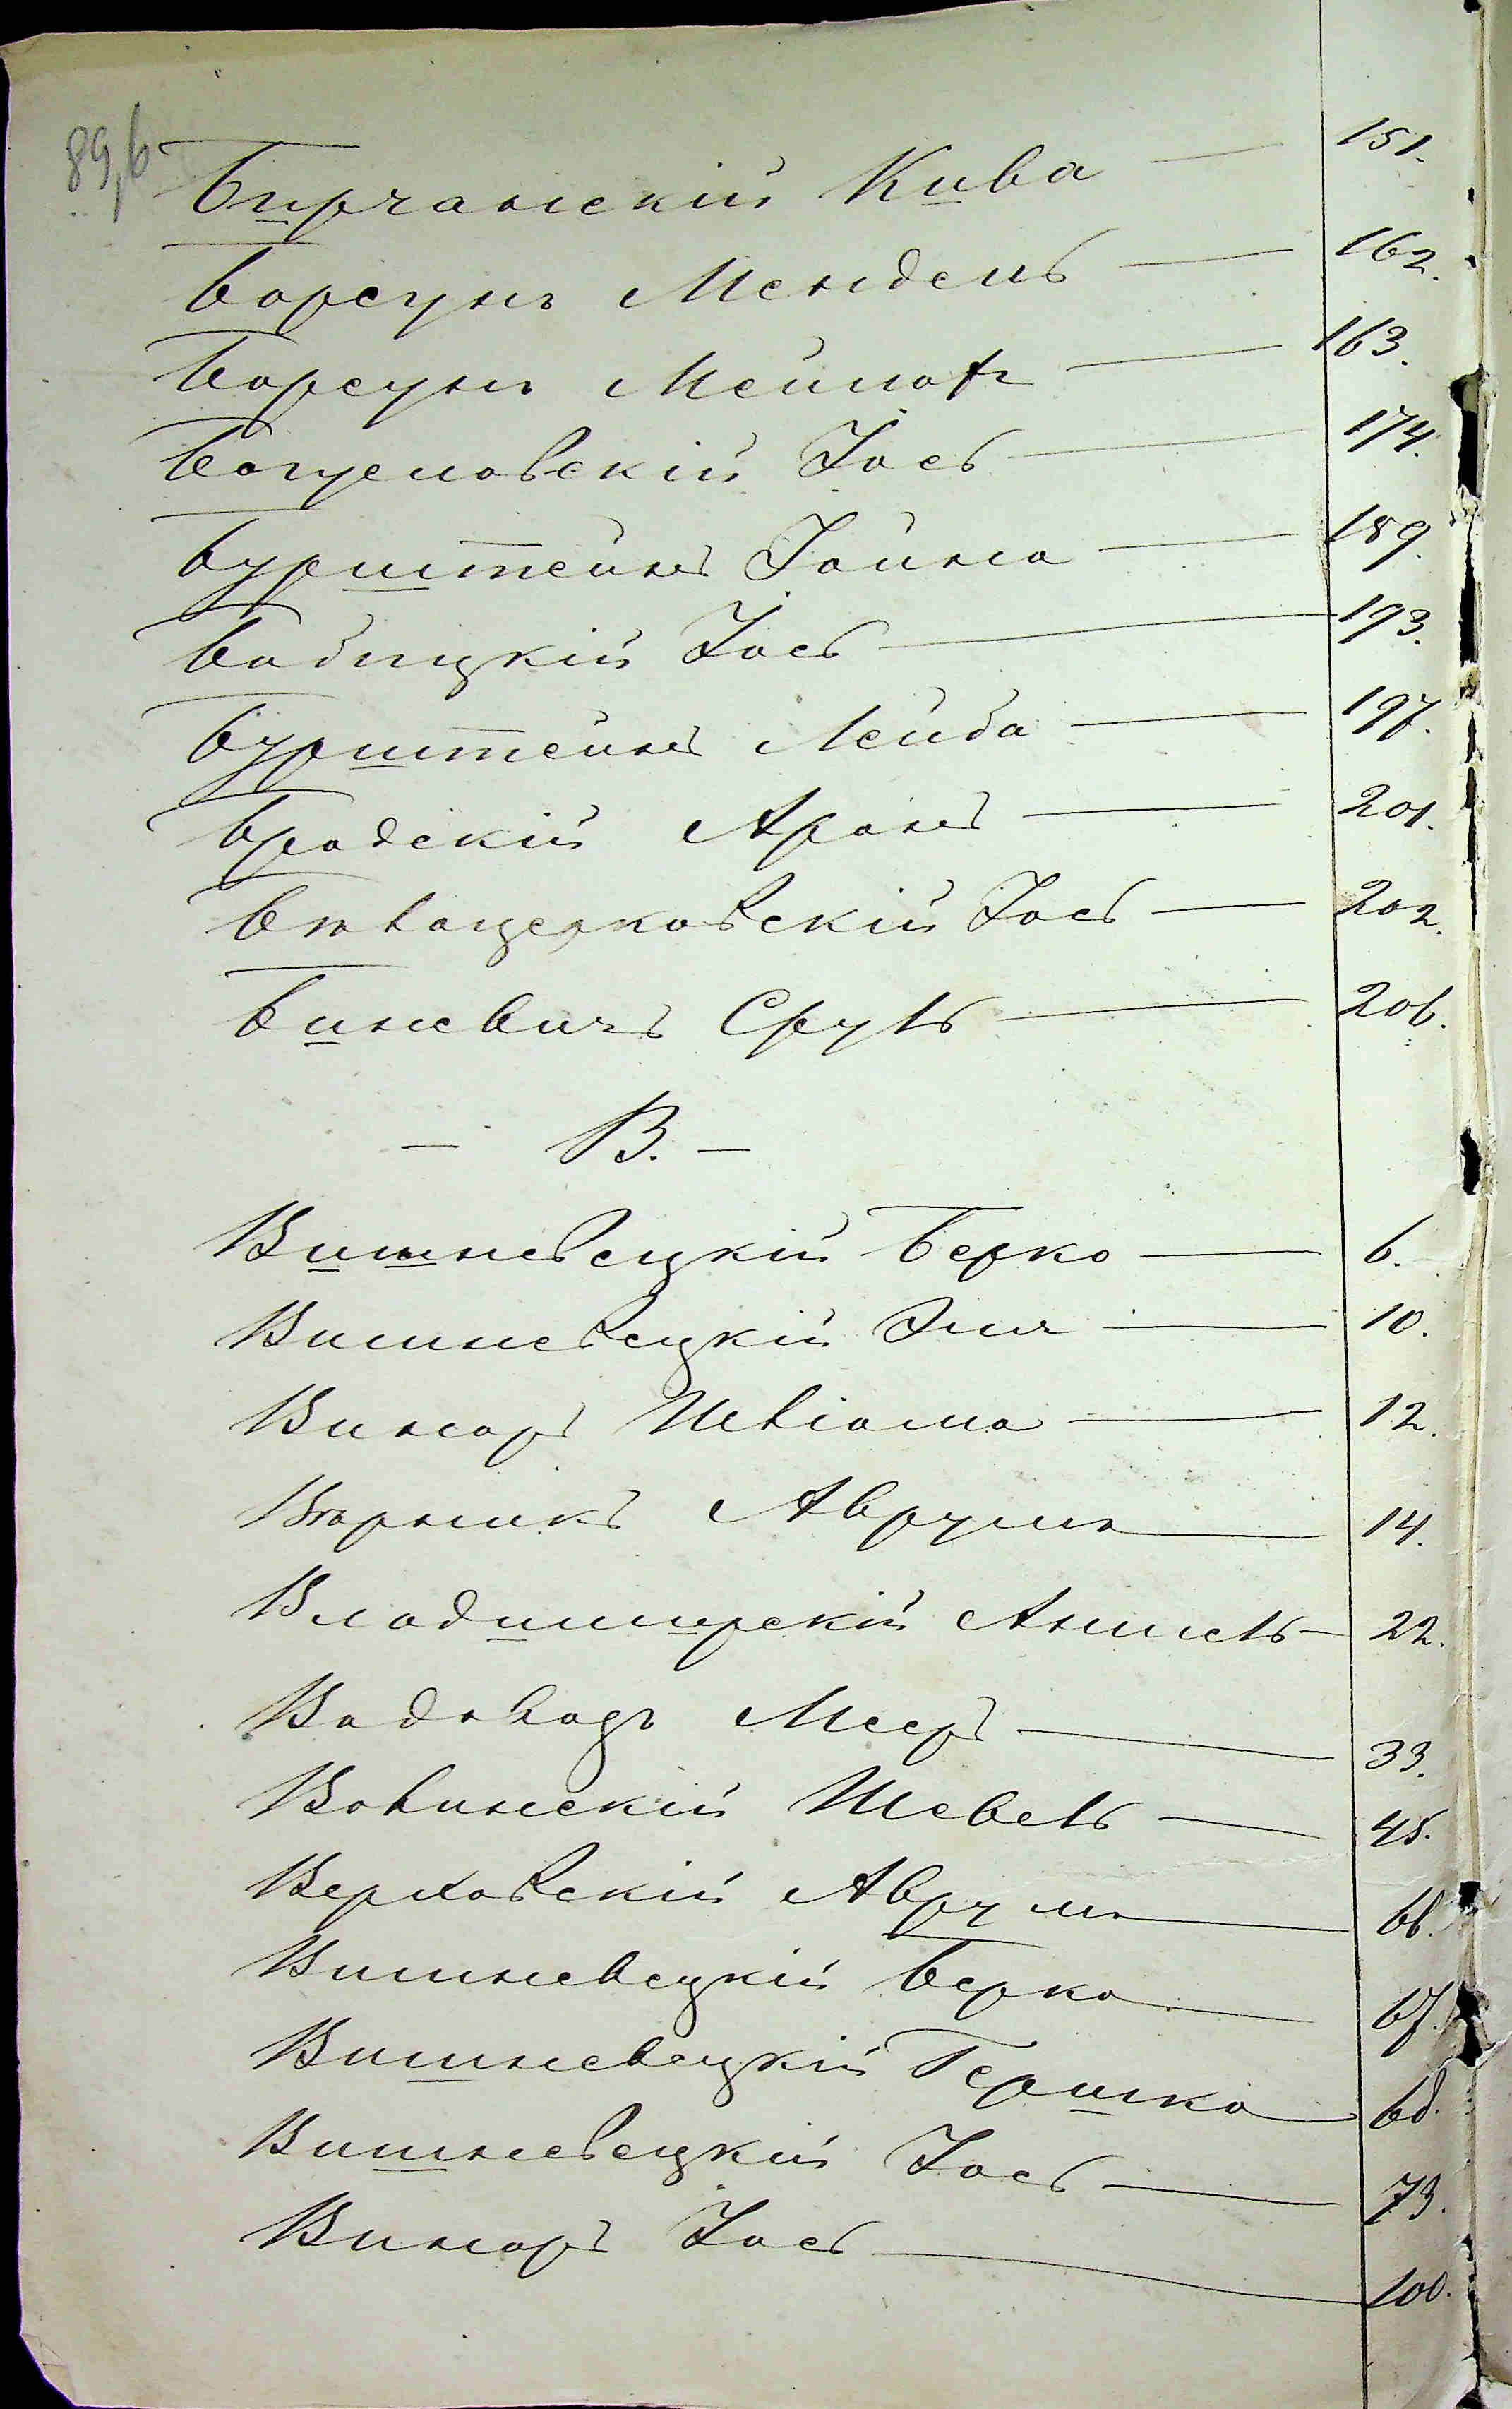 89,б
Бирчанскій Кива — 151.
Борсукъ Мендель — 162.
Борсукъ Мейлахъ — 163.
Богуславскій Іось — 174.
Бурштейнъ Іойна — 189.
Бабицкій Іось — 193.
Бурштейнъ Лейба — 197.
Бродскій Аронъ — 201.
Бѣлоцерковскій Іось — 202.
Биневичъ Сруль — 206.
— В. —
Вишневецкій Берко — 6.
Вишневецкій Эля — 10.
Винаръ Шліома — 12.
Вѣрникъ Аврумъ — 14.
Владимирскій Аншель — 22.
Водовозъ Мееръ — 33.
Волинскій Шевель — 45.
Верховскій Аврумъ — 66.
Вишневецкій Берко — 67.
Вишневецкій Гершко — 68.
Вишневецкій Іось — 73.
Винаръ Іось — 100.